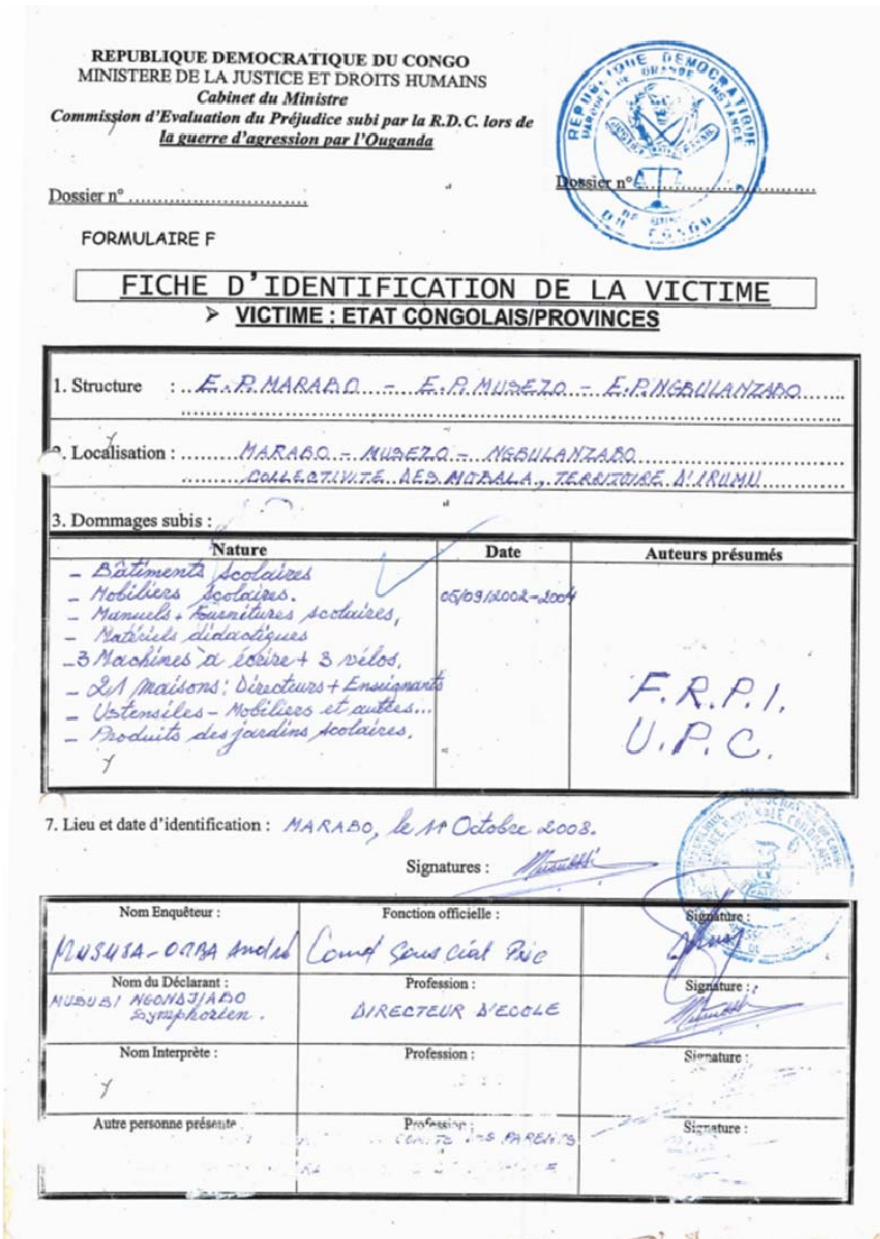 REPUBLIQUE DEMOCRATIQUE DU CONGO
MINISTERE DE LA JUSTICE ET DROITS HUMAINS
Cabinet du Ministre
Commission d'Evaluation du Préjudice subi par la R.D.C. lors de
la guerre d'agression par l'Ouganda
REPUBLIQUE DEMOCRATIQUE
DU CONGO
PARQUET DE GRANDE INSTANCE
JUSTICE PAIX TRAVAIL
Dossier n° ..............................
Dossier n° ..............................
FORMULAIRE F
FICHE D'IDENTIFICATION DE LA VICTIME
➤ VICTIME : ETAT CONGOLAIS/PROVINCES
1. Structure : .. E.P. MARABO - E.P. MUSEZO - E.P. NGBULANZABO
2. Localisation : MARABO - MUSEZO - NGBULANZABO
COLLECTIVITE DES MOBALA, TERRITOIRE D'IRUMU
3. Dommages subis :
Nature Date Auteurs présumés
- Bâtiments scolaires
- Mobiliers scolaires. 05/09/2002-2004
- Manuels + Fournitures scolaires,
- Matériels didactiques
- 3 Machines à écrire + 3 vélos,
- 21 Maisons : Directeurs + Enseignants
- Ustensiles - Mobiliers et autres...
- Produits des jardins scolaires.
F.R.P.I.
U.P.C.
7. Lieu et date d'identification : MARABO, le Octobre 2008.
Signatures :
Nom Enquêteur : Fonction officielle : Signature :
André
Nom du Déclarant : Profession : Signature :
MUBUBI NGONDJABO
Symphorien. DIRECTEUR D'ECOLE
Nom Interprète : Profession : Signature :
Autre personne présente Profession : Signature :
PARENTS